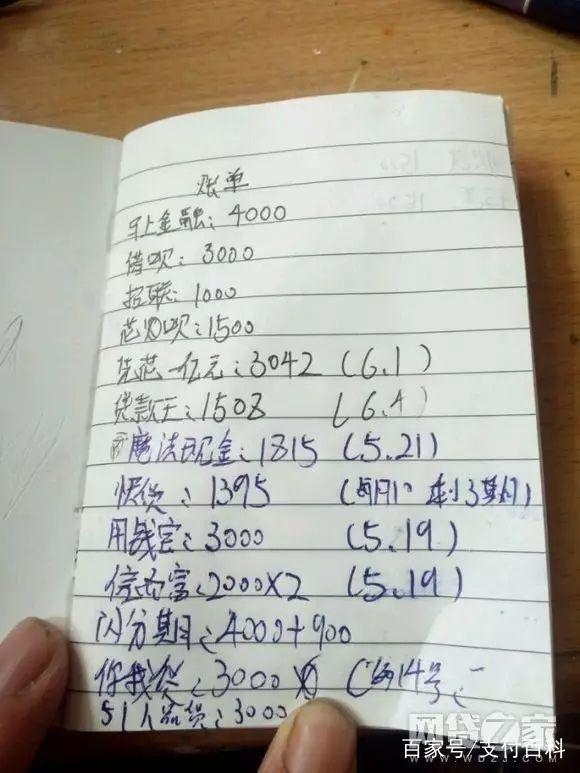 账单
马上金融:4000
借呗:3000
招联:1000
芝多呗:1500
先花一亿元:3042 (6.1)
贷款王:1508 (6.4)
魔法现金:1815 (5.21)
快贷:1395 (每月1 剩3期)
用钱宝:3000 (5.19)
信而富:2000×2 (5.19)
闪分期:4000+900
你我贷:3000 (14号
51人品贷:3000
网贷之家
百家号/支付百科